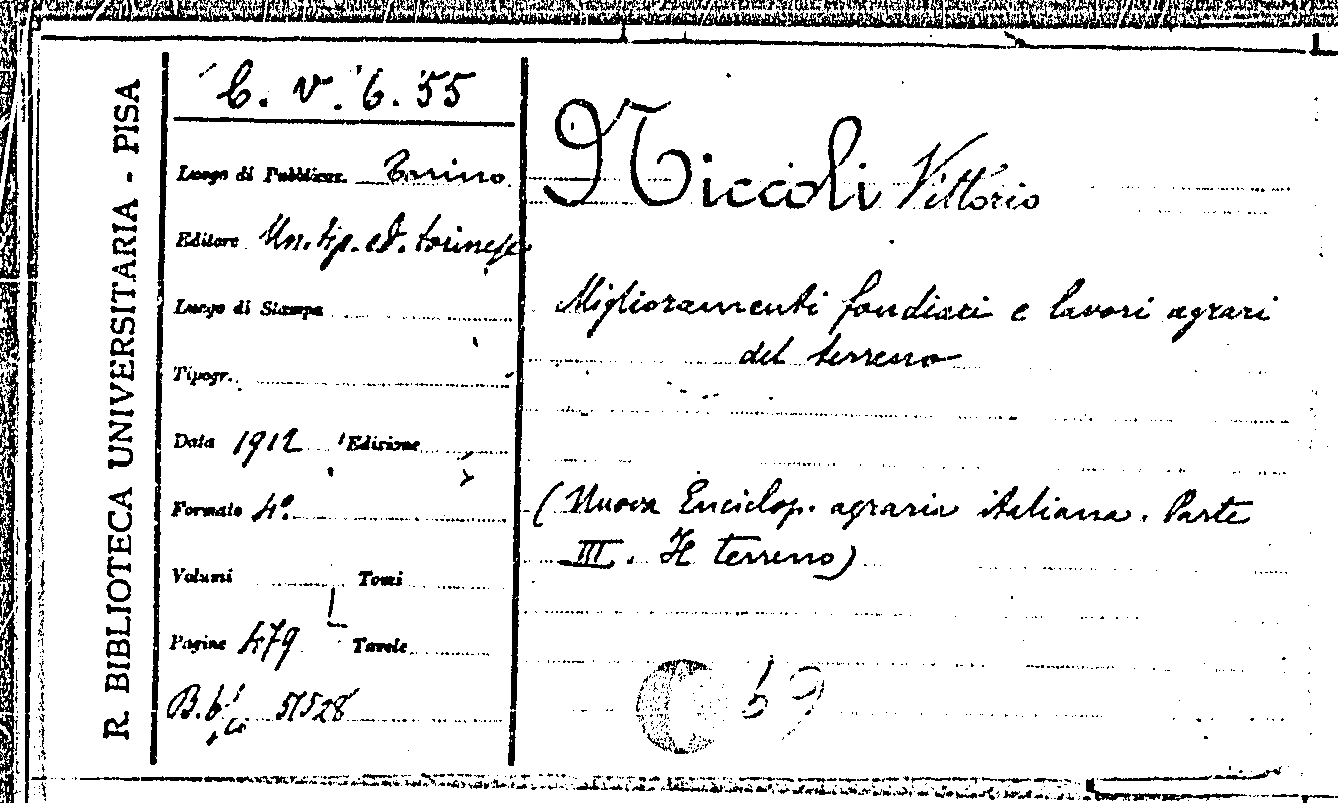 R. BIBLIOTECA UNIVERSITARIA - PISA
C. v. 6. 55
Luogo di Pubblicaz. Torino
Editore Un. tip. ed. torinese
Luogo di Stampa
Tipogr.
Data 1912 Edizione
Formato 4º.
Volumi Tomi
Pagine 479 Tavole
51528
Niccoli Vittorio
Miglioramenti fondiari e lavori agrari
del terreno
(Nuova Enciclop. agraria italiana. Parte
III. Il terreno)